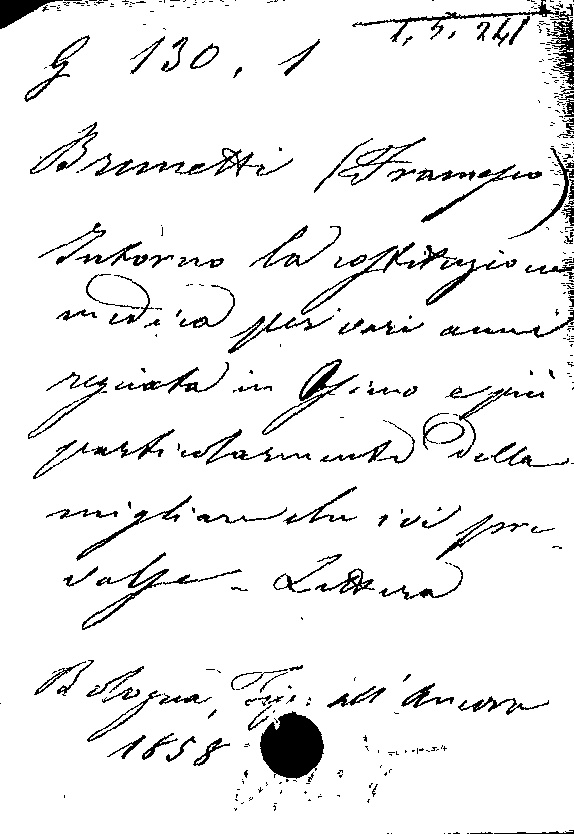 1. 5. 24
G 130. 1
Brunetti (Francesco)
Intorno la costituzione
medica per vari anni
regnata in Osimo e più
particolarmente della
migliare che ivi pre-
valse - Lettera
Bologna, Tip. all'Ancora
1858